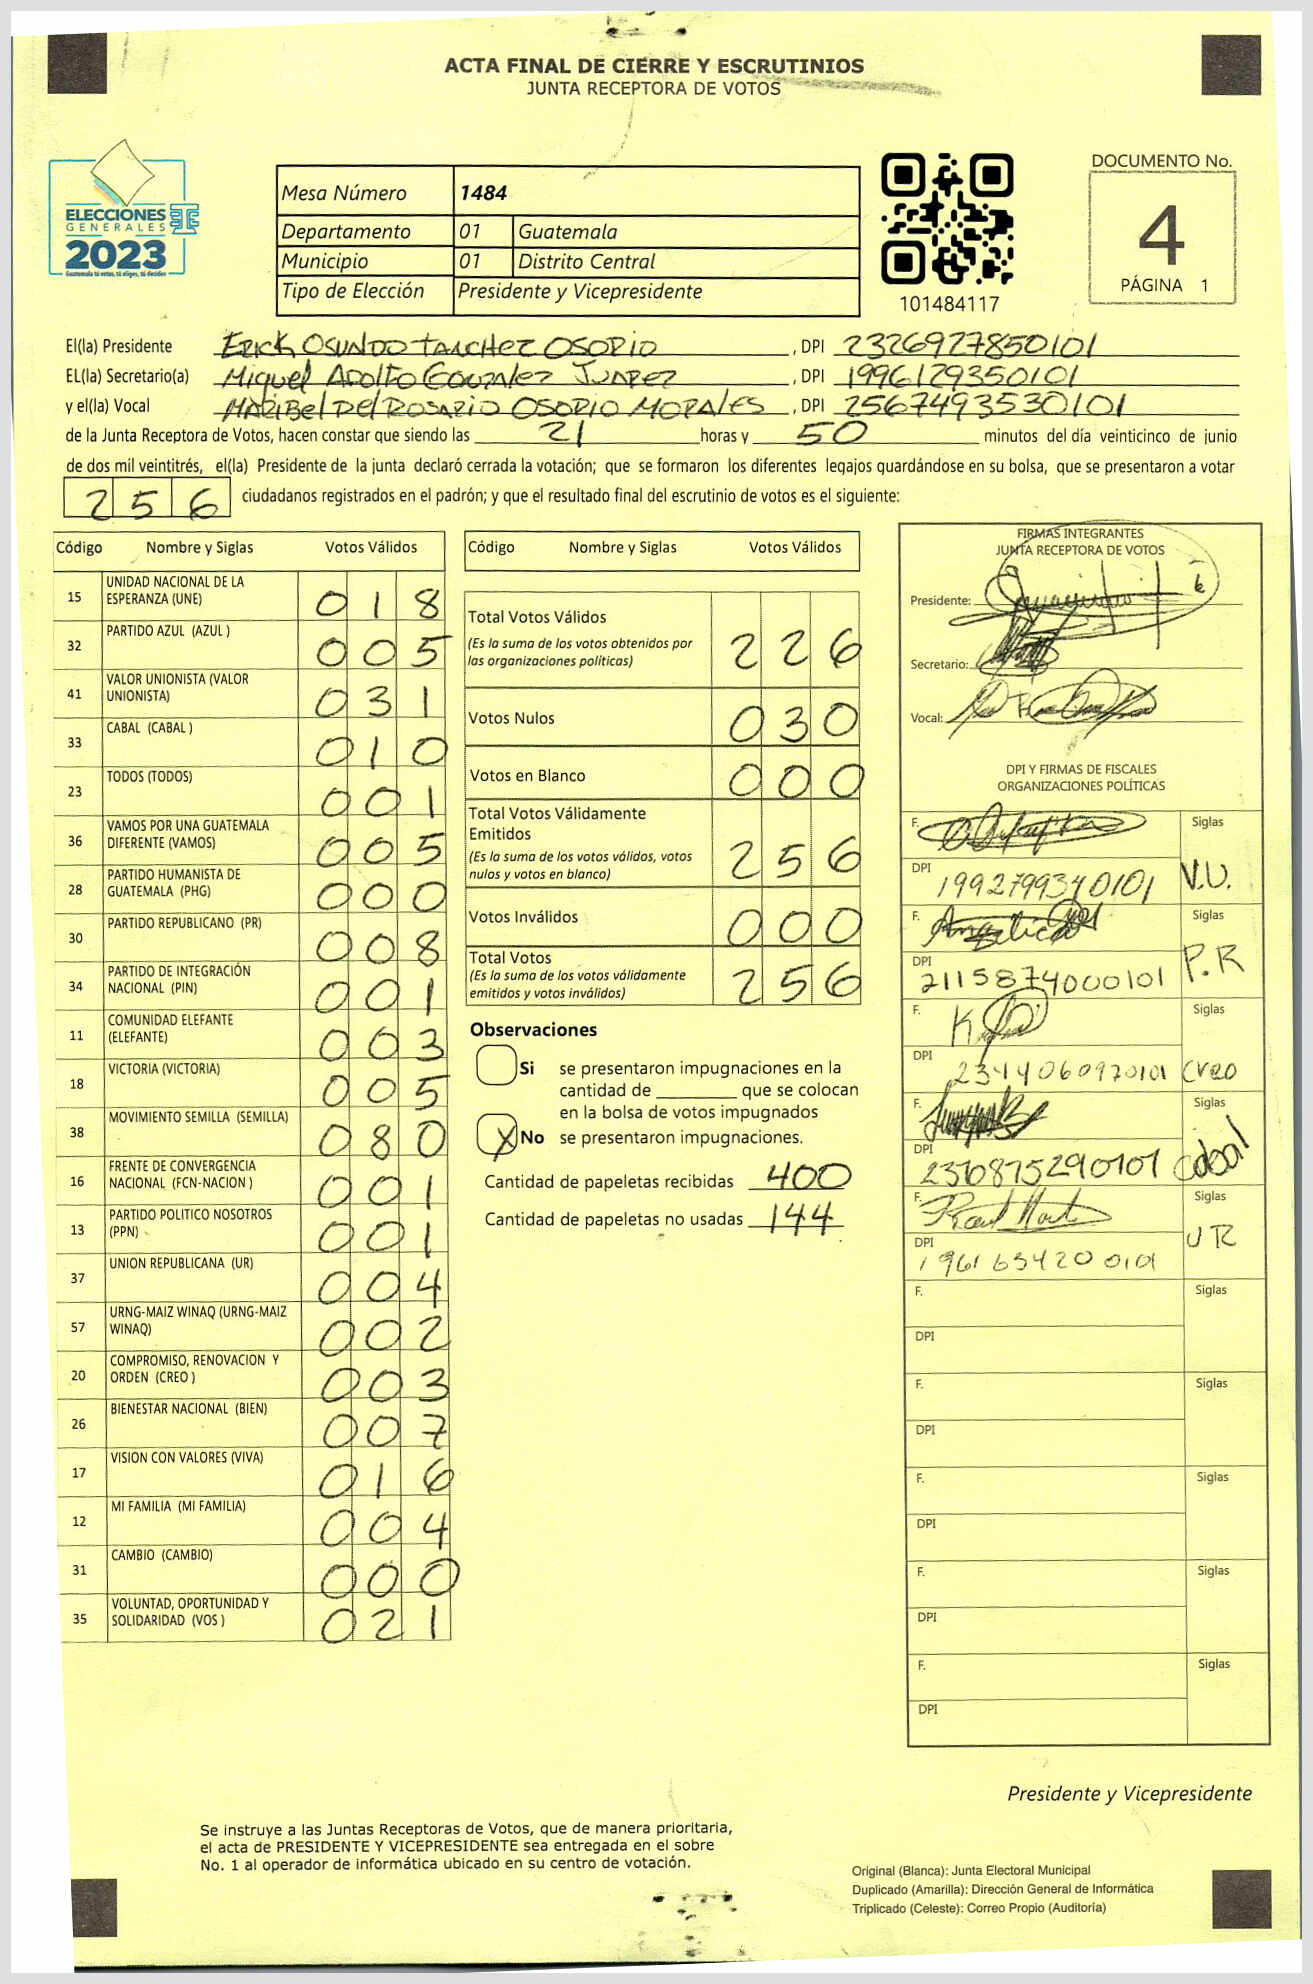 ACTA FINAL DE CIERRE Y ESCRUTINIOS
JUNTA RECEPTORA DE VOTOS
ELECCIONES
GENERALES
2023
Guatemala tú votas, tú eliges, tú decides
Mesa Número 1484
Departamento 01 Guatemala
Municipio 01 Distrito Central
Tipo de Elección Presidente y Vicepresidente
101484117
DOCUMENTO No.
4
PÁGINA 1
El(la) Presidente Erick Osundo Sanchez Osorio, DPI 2326927850101
EL(la) Secretario(a) Miguel Adolfo Gonzalez Juarez, DPI 1996129350101
y el(la) Vocal Maribel Del Rosario Osorio Morales, DPI 2567493530101
de la Junta Receptora de Votos, hacen constar que siendo las 21 horas y 50 minutos del día veinticinco de junio
de dos mil veintitrés, el(la) Presidente de la junta declaró cerrada la votación; que se formaron los diferentes legajos guardándose en su bolsa, que se presentaron a votar
256 ciudadanos registrados en el padrón; y que el resultado final del escrutinio de votos es el siguiente:
Código Nombre y Siglas Votos Válidos
15 UNIDAD NACIONAL DE LA ESPERANZA (UNE) 018
32 PARTIDO AZUL (AZUL ) 005
41 VALOR UNIONISTA (VALOR UNIONISTA) 031
33 CABAL (CABAL ) 010
23 TODOS (TODOS) 001
36 VAMOS POR UNA GUATEMALA DIFERENTE (VAMOS) 005
28 PARTIDO HUMANISTA DE GUATEMALA (PHG) 000
30 PARTIDO REPUBLICANO (PR) 008
34 PARTIDO DE INTEGRACIÓN NACIONAL (PIN) 001
11 COMUNIDAD ELEFANTE (ELEFANTE) 003
18 VICTORIA (VICTORIA) 005
38 MOVIMIENTO SEMILLA (SEMILLA) 080
16 FRENTE DE CONVERGENCIA NACIONAL (FCN-NACION ) 001
13 PARTIDO POLITICO NOSOTROS (PPN) 001
37 UNION REPUBLICANA (UR) 004
57 URNG-MAIZ WINAQ (URNG-MAIZ WINAQ) 002
20 COMPROMISO, RENOVACION Y ORDEN (CREO ) 003
26 BIENESTAR NACIONAL (BIEN) 007
17 VISION CON VALORES (VIVA) 016
12 MI FAMILIA (MI FAMILIA) 004
31 CAMBIO (CAMBIO) 000
35 VOLUNTAD, OPORTUNIDAD Y SOLIDARIDAD (VOS ) 021
Código Nombre y Siglas Votos Válidos
Total Votos Válidos
(Es la suma de los votos obtenidos por
las organizaciones políticas) 226
Votos Nulos 030
Votos en Blanco 000
Total Votos Válidamente
Emitidos
(Es la suma de los votos válidos, votos
nulos y votos en blanco) 256
Votos Inválidos 000
Total Votos
(Es la suma de los votos válidamente
emitidos y votos inválidos) 256
Observaciones
Si se presentaron impugnaciones en la
cantidad de ________ que se colocan
en la bolsa de votos impugnados
X No se presentaron impugnaciones.
Cantidad de papeletas recibidas 400
Cantidad de papeletas no usadas 144
FIRMAS INTEGRANTES
JUNTA RECEPTORA DE VOTOS
Presidente:
Secretario:
Vocal:
DPI Y FIRMAS DE FISCALES
ORGANIZACIONES POLÍTICAS
F. Siglas
DPI 1992799340101 V.U.
F. Siglas
DPI 2115874000101 P.R
F. Siglas
DPI 2344060970101 Creo
F. Siglas
DPI 2310875290101 Cabal
F. Siglas
DPI 1961654200101 UR
F. Siglas
DPI
F. Siglas
DPI
F. Siglas
DPI
F. Siglas
DPI
F. Siglas
DPI
Presidente y Vicepresidente
Se instruye a las Juntas Receptoras de Votos, que de manera prioritaria,
el acta de PRESIDENTE Y VICEPRESIDENTE sea entregada en el sobre
No. 1 al operador de informática ubicado en su centro de votación.
Original (Blanca): Junta Electoral Municipal
Duplicado (Amarilla): Dirección General de Informática
Triplicado (Celeste): Correo Propio (Auditoría)